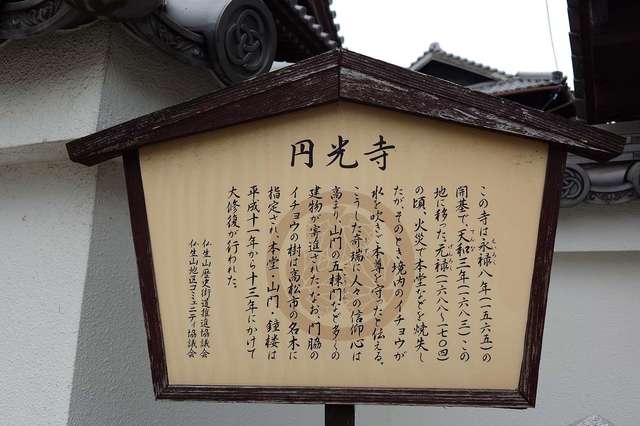 円光寺
この寺は永禄八年(一五六五)の
開基で天和三年(一六八三)この
地に移った。元禄(一六八八~一七〇四)
の頃、火災で本堂などを焼失し
たが、そのとき境内のイチョウが
水を吹いて本尊を守ったと伝える。
こうした奇瑞に人々の信仰心は
高まり山門の五棟門など多くの
建物が寄進された。なお、門脇の
イチョウの樹は高松市の名木に
指定され、本堂・山門・鐘楼は
平成十一年から十三年にかけて
大修復が行われた。
仏生山歴史街道推進協議会
仏生山地区コミュニティ協議会